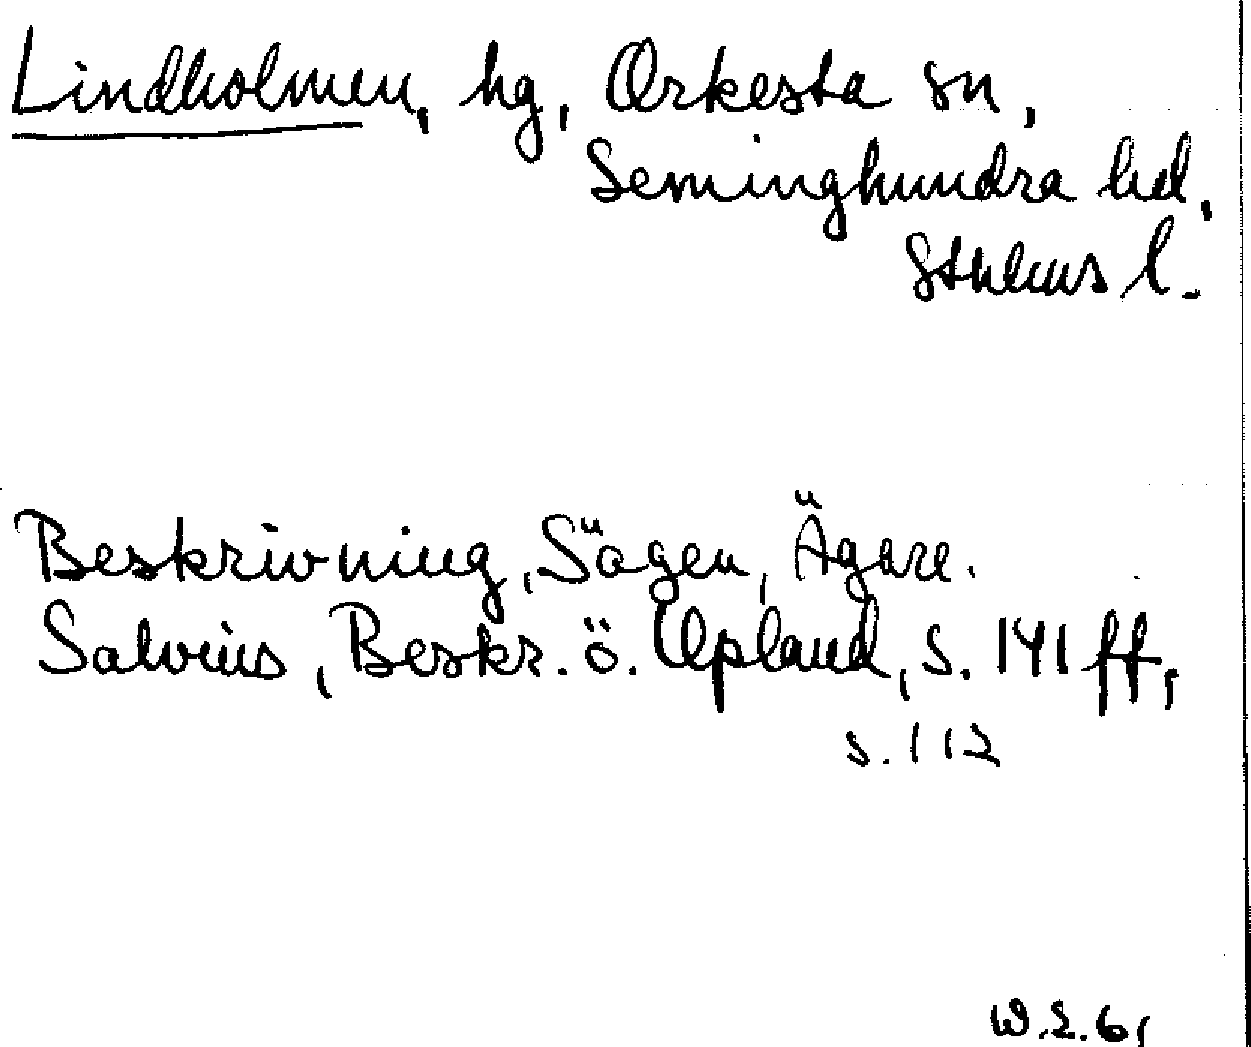 Lindholmen, hg, Orkesta sn,
Seminghundra hd,
Sthlms l.
Beskrivning, Sägen, Ägare.
Salvius, Beskr. ö. Upland, s. 141 ff,
s. 112
W.L.61